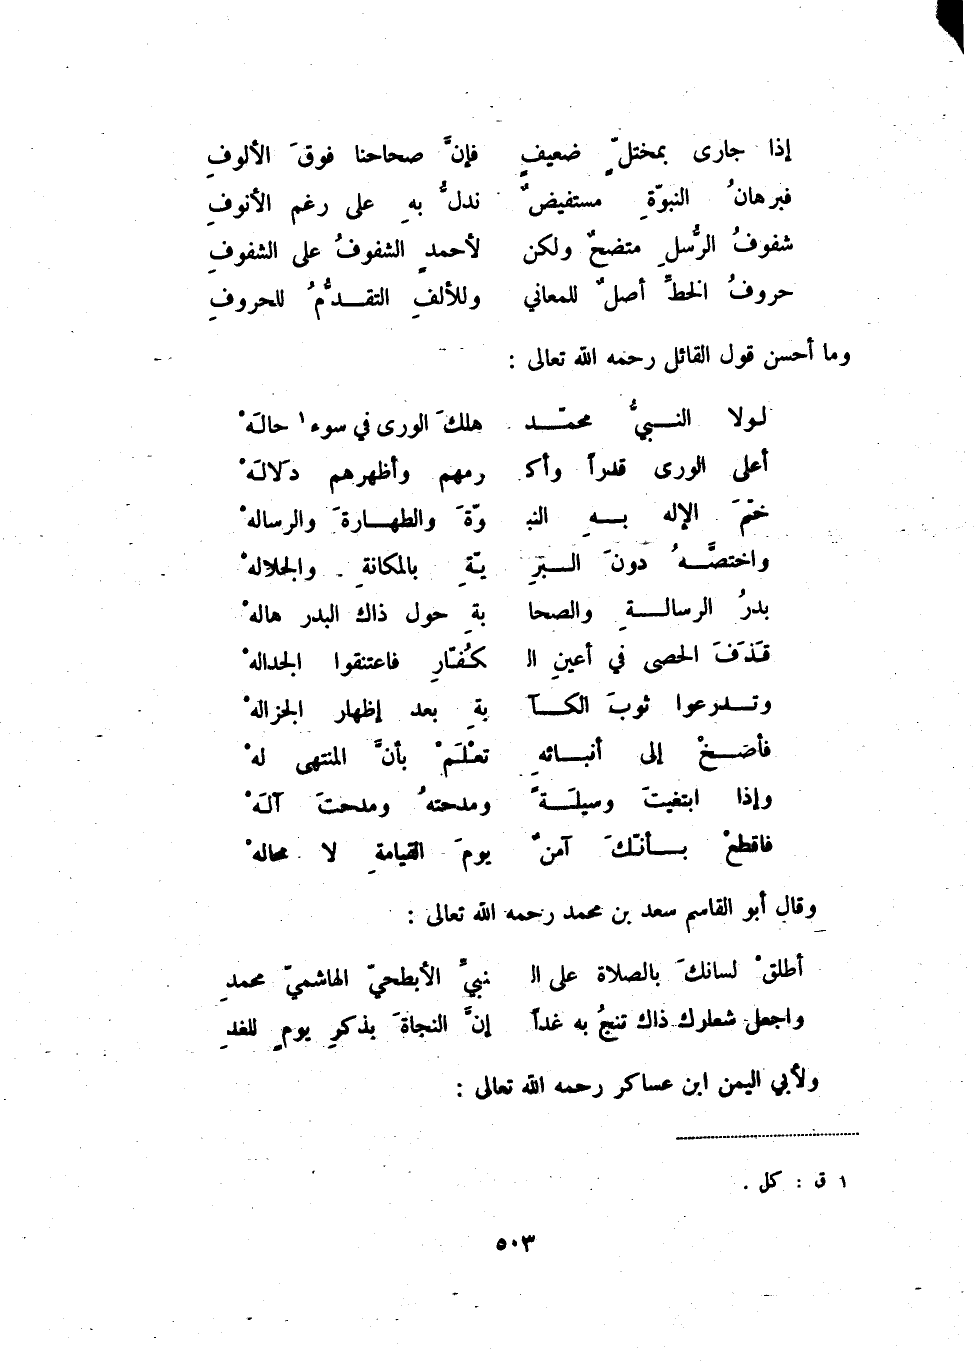 إذا جارى بمختلٍّ ضعيفٍ فإنَّ صحاحنا فوقَ الألوفِ
فبرهانُ النبوّةِ مستفيضٌ ندلُّ بهِ على رغم الأنوفِ
شفوفُ الرُّسلِ متضحٌ ولكن لأحمدٍ الشفوفُ على الشفوفِ
حروفُ الخطِّ أصلٌ للمعاني وللألفِ التقـدُّمُ للحروفِ
وما أحسن قول القائل رحمه الله تعالى :
لـولا النـبيُّ محمّـد هلكَ الورى في سوء ١ حالَهْ
أعلى الورى قدراً وأكـ رمهم وأظهرهم دلالَهْ
ختمَ الإله بـهِ النبـ وّةَ والطهـارةَ والرسالهْ
واختصَّـهُ دونَ الـبرِ يّةِ بالمكانةِ والجلالهْ
بدرُ الرسالـةِ والصحا بةِ حول ذاك البدر هالهْ
قَذَفَ الحصى في أعينِ الـ كُفّارِ فاعتنقوا الجدالهْ
وتـدرعوا ثوبَ الكـآ بةِ بعد إظهار الجزالهْ
فأصَـخْ إلى أنبـائهِ تعْلَمْ بأنَّ المنتهى لهْ
وإذا ابتغيتَ وسيلَـةً ومدحتهُ ومدحتَ آلَهْ
فاقطعْ بـأنّكَ آمنٌ يومَ القيامةِ لا محالهْ
وقال أبو القاسم سعد بن محمد رحمه الله تعالى :
أطلقْ لسانكَ بالصلاة على الـ نبيِّ الأبطحيّ الهاشميّ محمدِ
واجعل شعارك ذاك تنجُ به غداً إنَّ النجاةَ بذكرِ يومٍ للغدِ
ولأبي اليمن ابن عساكر رحمه الله تعالى :
١ ق : كل .
٥٠٣